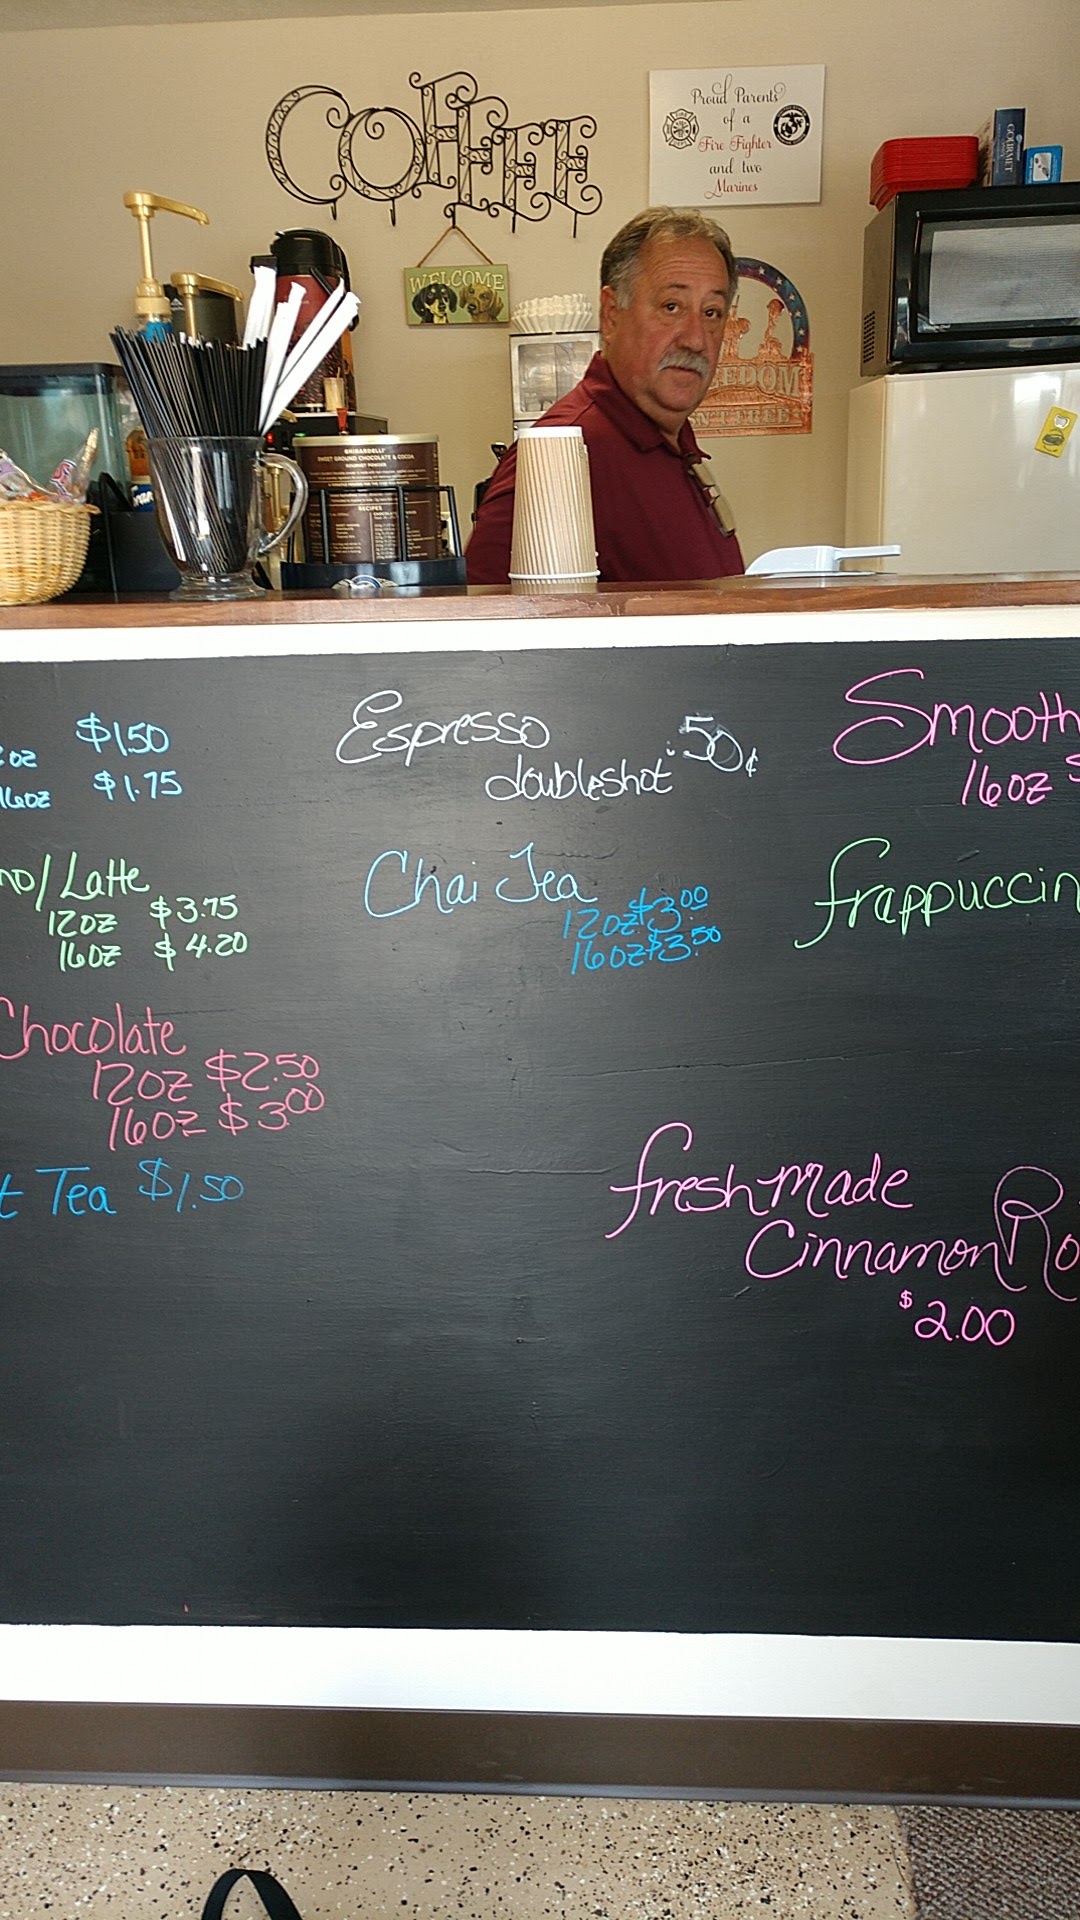 COFFEE
Proud Parents
of a
Fire Fighter
and two
Marines
WELCOME
GOURMET
EEDOM
N'T FREE
GHIRARDELLI
SWEET GROUND CHOCOLATE & COCOA
GOURMET POWDER
RECIPES
oz $1.50
16oz $1.75
no/Latte
12oz $3.75
16oz $4.20
Chocolate
12oz $2.50
16oz $3.00
t Tea $1.50
Espresso
doubleshot .50¢
Chai Tea
12oz $3.00
16oz $3.50
Smooth
16oz $
frappuccin
fresh made
Cinnamon Ro
$2.00